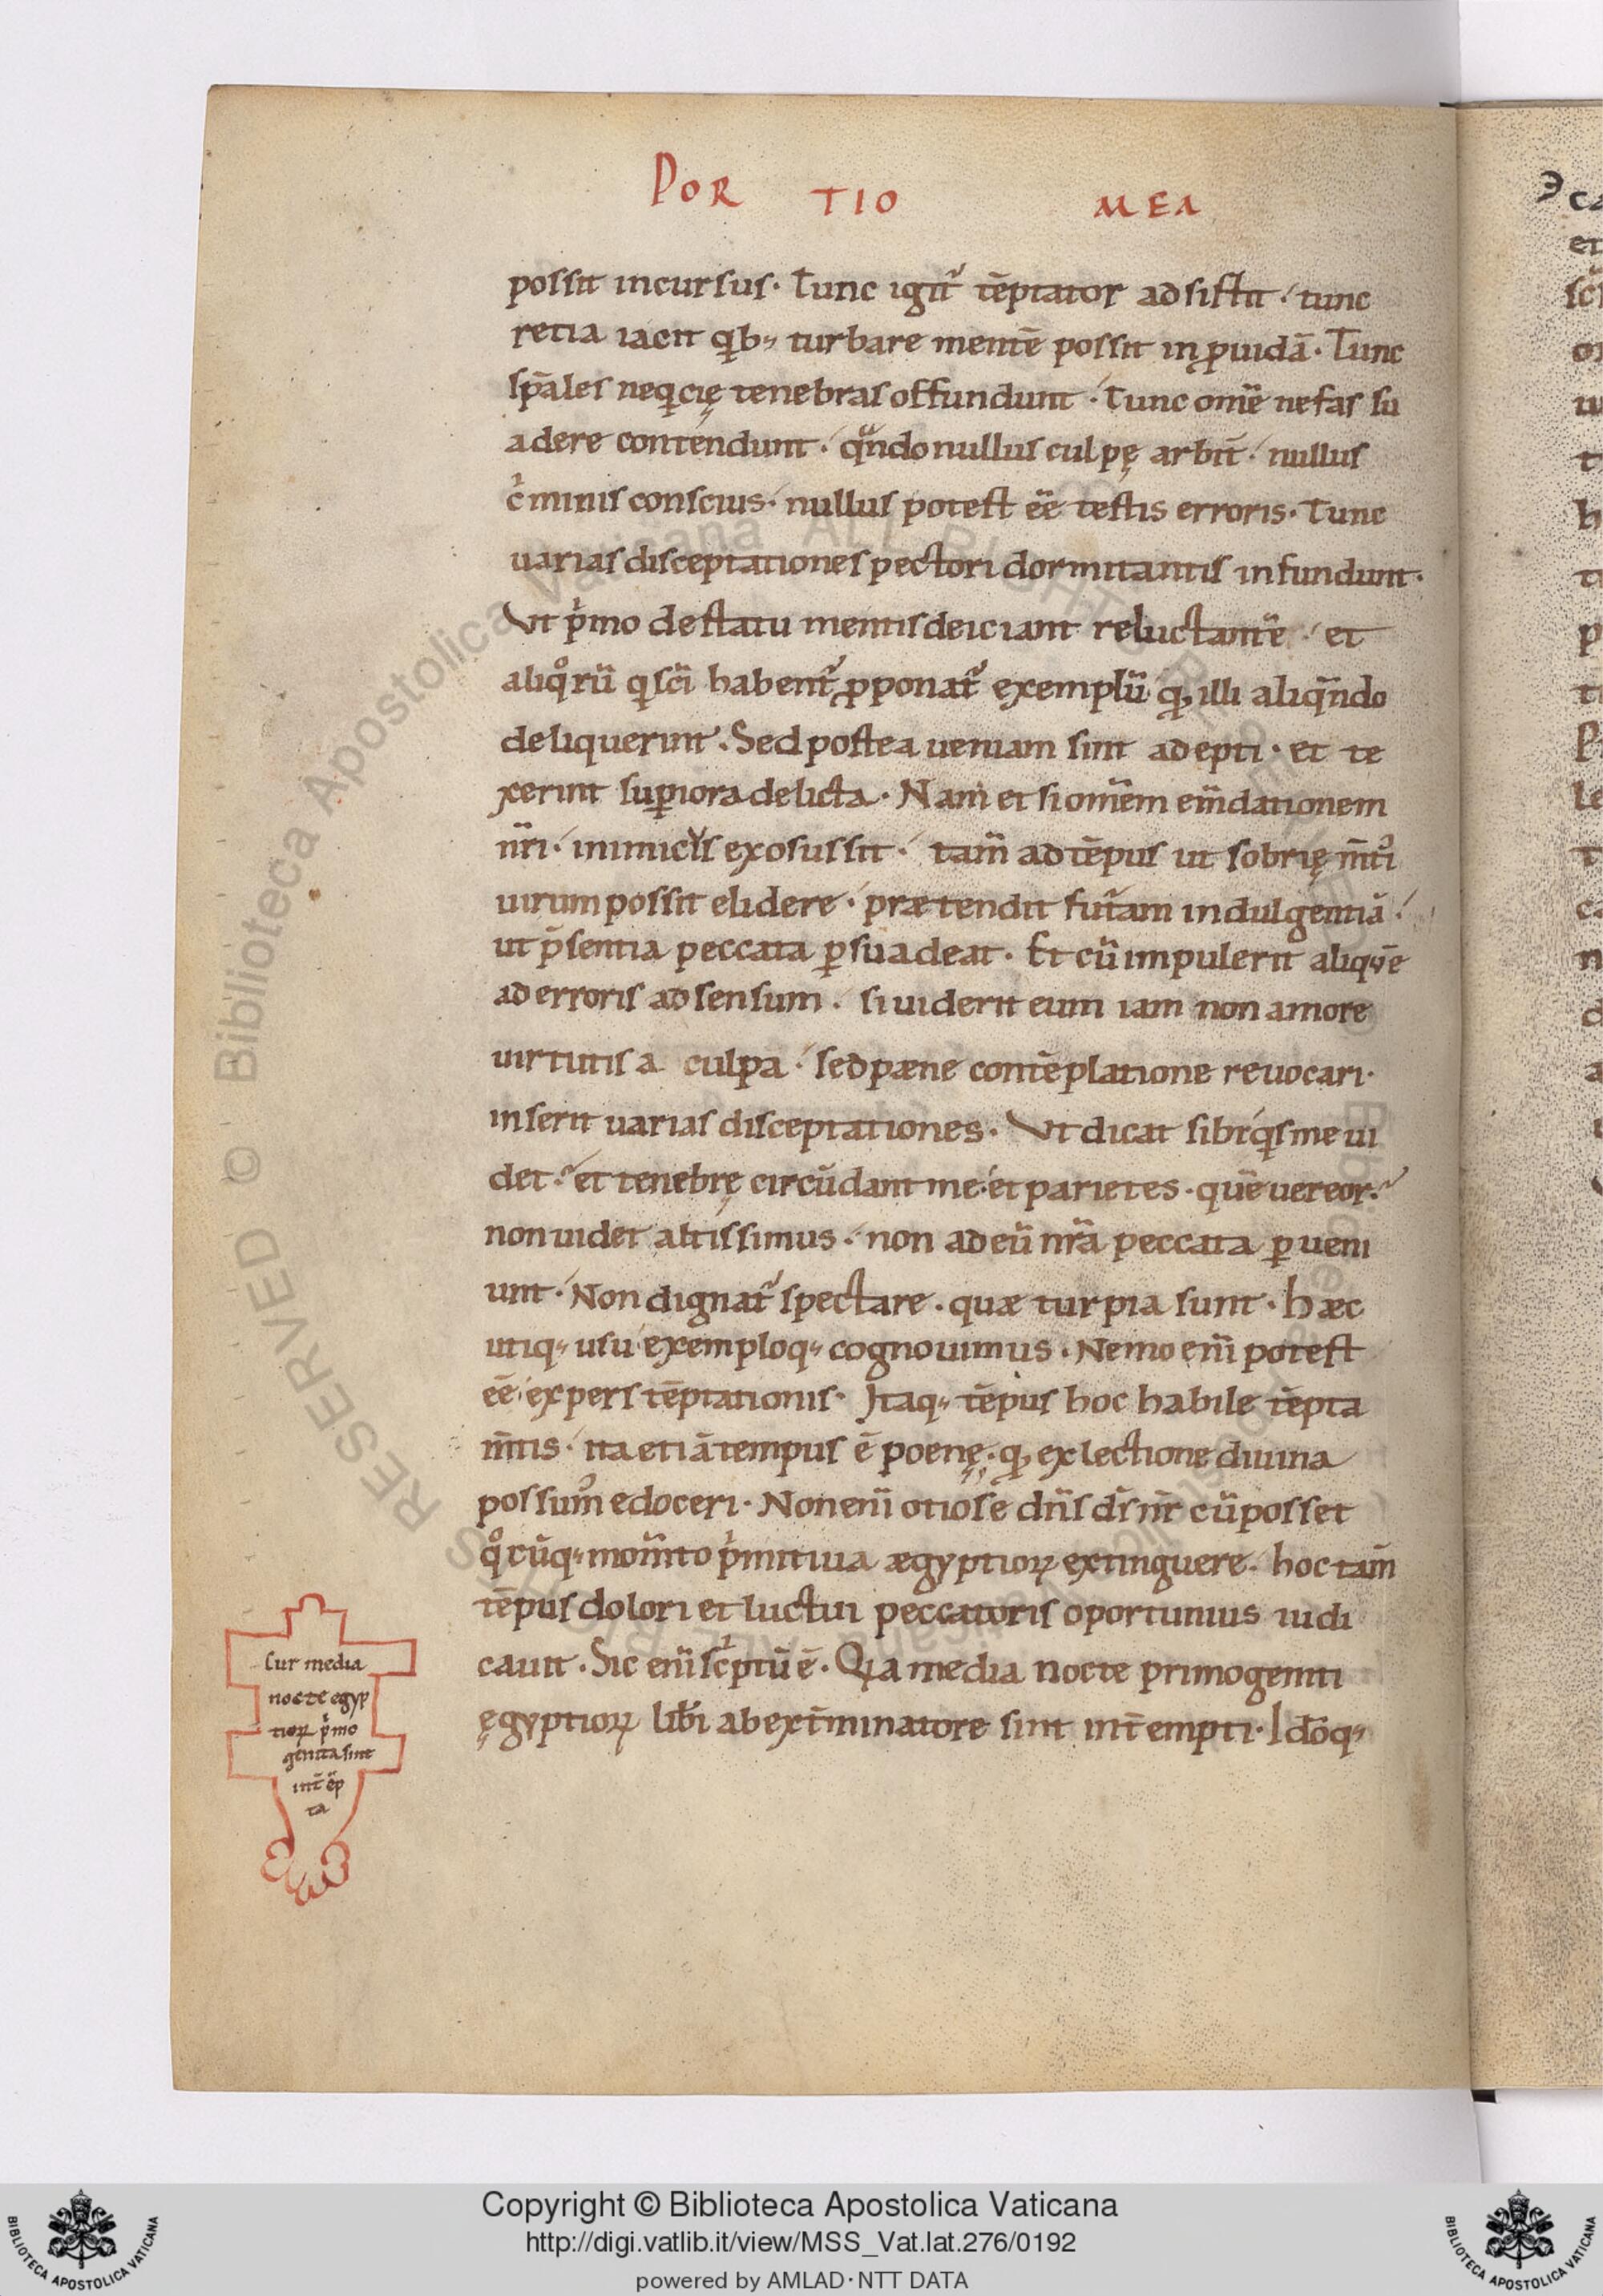 POR TIO MEA
possit incursus· Tunc igit̃ tēptator adsistit ·́ tunc
retia iacit qib; turbare mentē possit inꝓuidā· Tunc
sp̄ales neqicię tenebras offundunt ·́ Tunc om̄e nefas su
adere contendunt ·́ qᵃndo nullus culpę arbit̄ ·́ nullus
cⁱminis conscius· nullus potest eē testis erroris· Tunc
uarias disceptationes pectori dormitantis infundunt·
Vt pⁱmo destatu mentis deiciant reluctantē ·́ et
aliqͦrū qi sc̄i habent̃ ꝓponat̃ exemplū qꝫ illi aliqᵃndo
deliquerint· Sed postea ueniam sint adepti· et te
xerint suꝑiora delicta· Nam et si om̄em em̄dationem
nr̄i ·́ inimicis exosus sit ·́ tam̄ ad tēpus ut sobrię m̄tⁱ
uirum possit elidere ·́ prætendit fut̃am indulgentiā ·́
ut p̄sentia peccata ꝑsuadeat· Et cū impulerit aliquē
ad erroris adsensum· si uiderit eum iam non amore
uirtutis a culpa ·́ sed pæne contēplatione reuocari·
inserit uarias disceptationes· Vt dicat sibi qis me ui
det·́ et tenebrę circūdant me et parietes· quē uereor·́
non uidet altissimus ·́ non ad eū nr̄a peccata ꝑueni
unt ·́ Non dignat̃ spectare· quæ turpia sunt· hæc
utiq; usu exemploq; cognouimus· Nemo eni̅ potest
eē expers tēptationis· Itaq; tēpus hoc habile tēpta
m̄tis ·́ ita etiā tempus ē poenę· qꝫ ex lectione diuina
possum᾽ edoceri· Non eni̅ otiose dn̄s ds̄ nr̄ cū posset
qͦcūq; mom̄to pⁱmitiua ægyptioꝝ extinguere· hoc tam̄
tēpus dolori et luctui peccatoris oportunius iudi
cauit· Sic eni̅ scⁱptū ē· Qia media nocte primogeniti
ęgyptioꝝ lib̄i ab ext̄minatore sint int̄empti· Idōq;
Cur media
nocte egyp
tioꝝ pⁱmo
genita sint
int̄ēp
ta
© Biblioteca Apostolica Vaticana ALL RIGHTS RESERVED
Copyright © Biblioteca Apostolica Vaticana
http://digi.vatlib.it/view/MSS_Vat.lat.276/0192
powered by AMLAD·NTT DATA
BIBLIOTECA APOSTOLICA VATICANA
BIBLIOTECA APOSTOLICA VATICANA